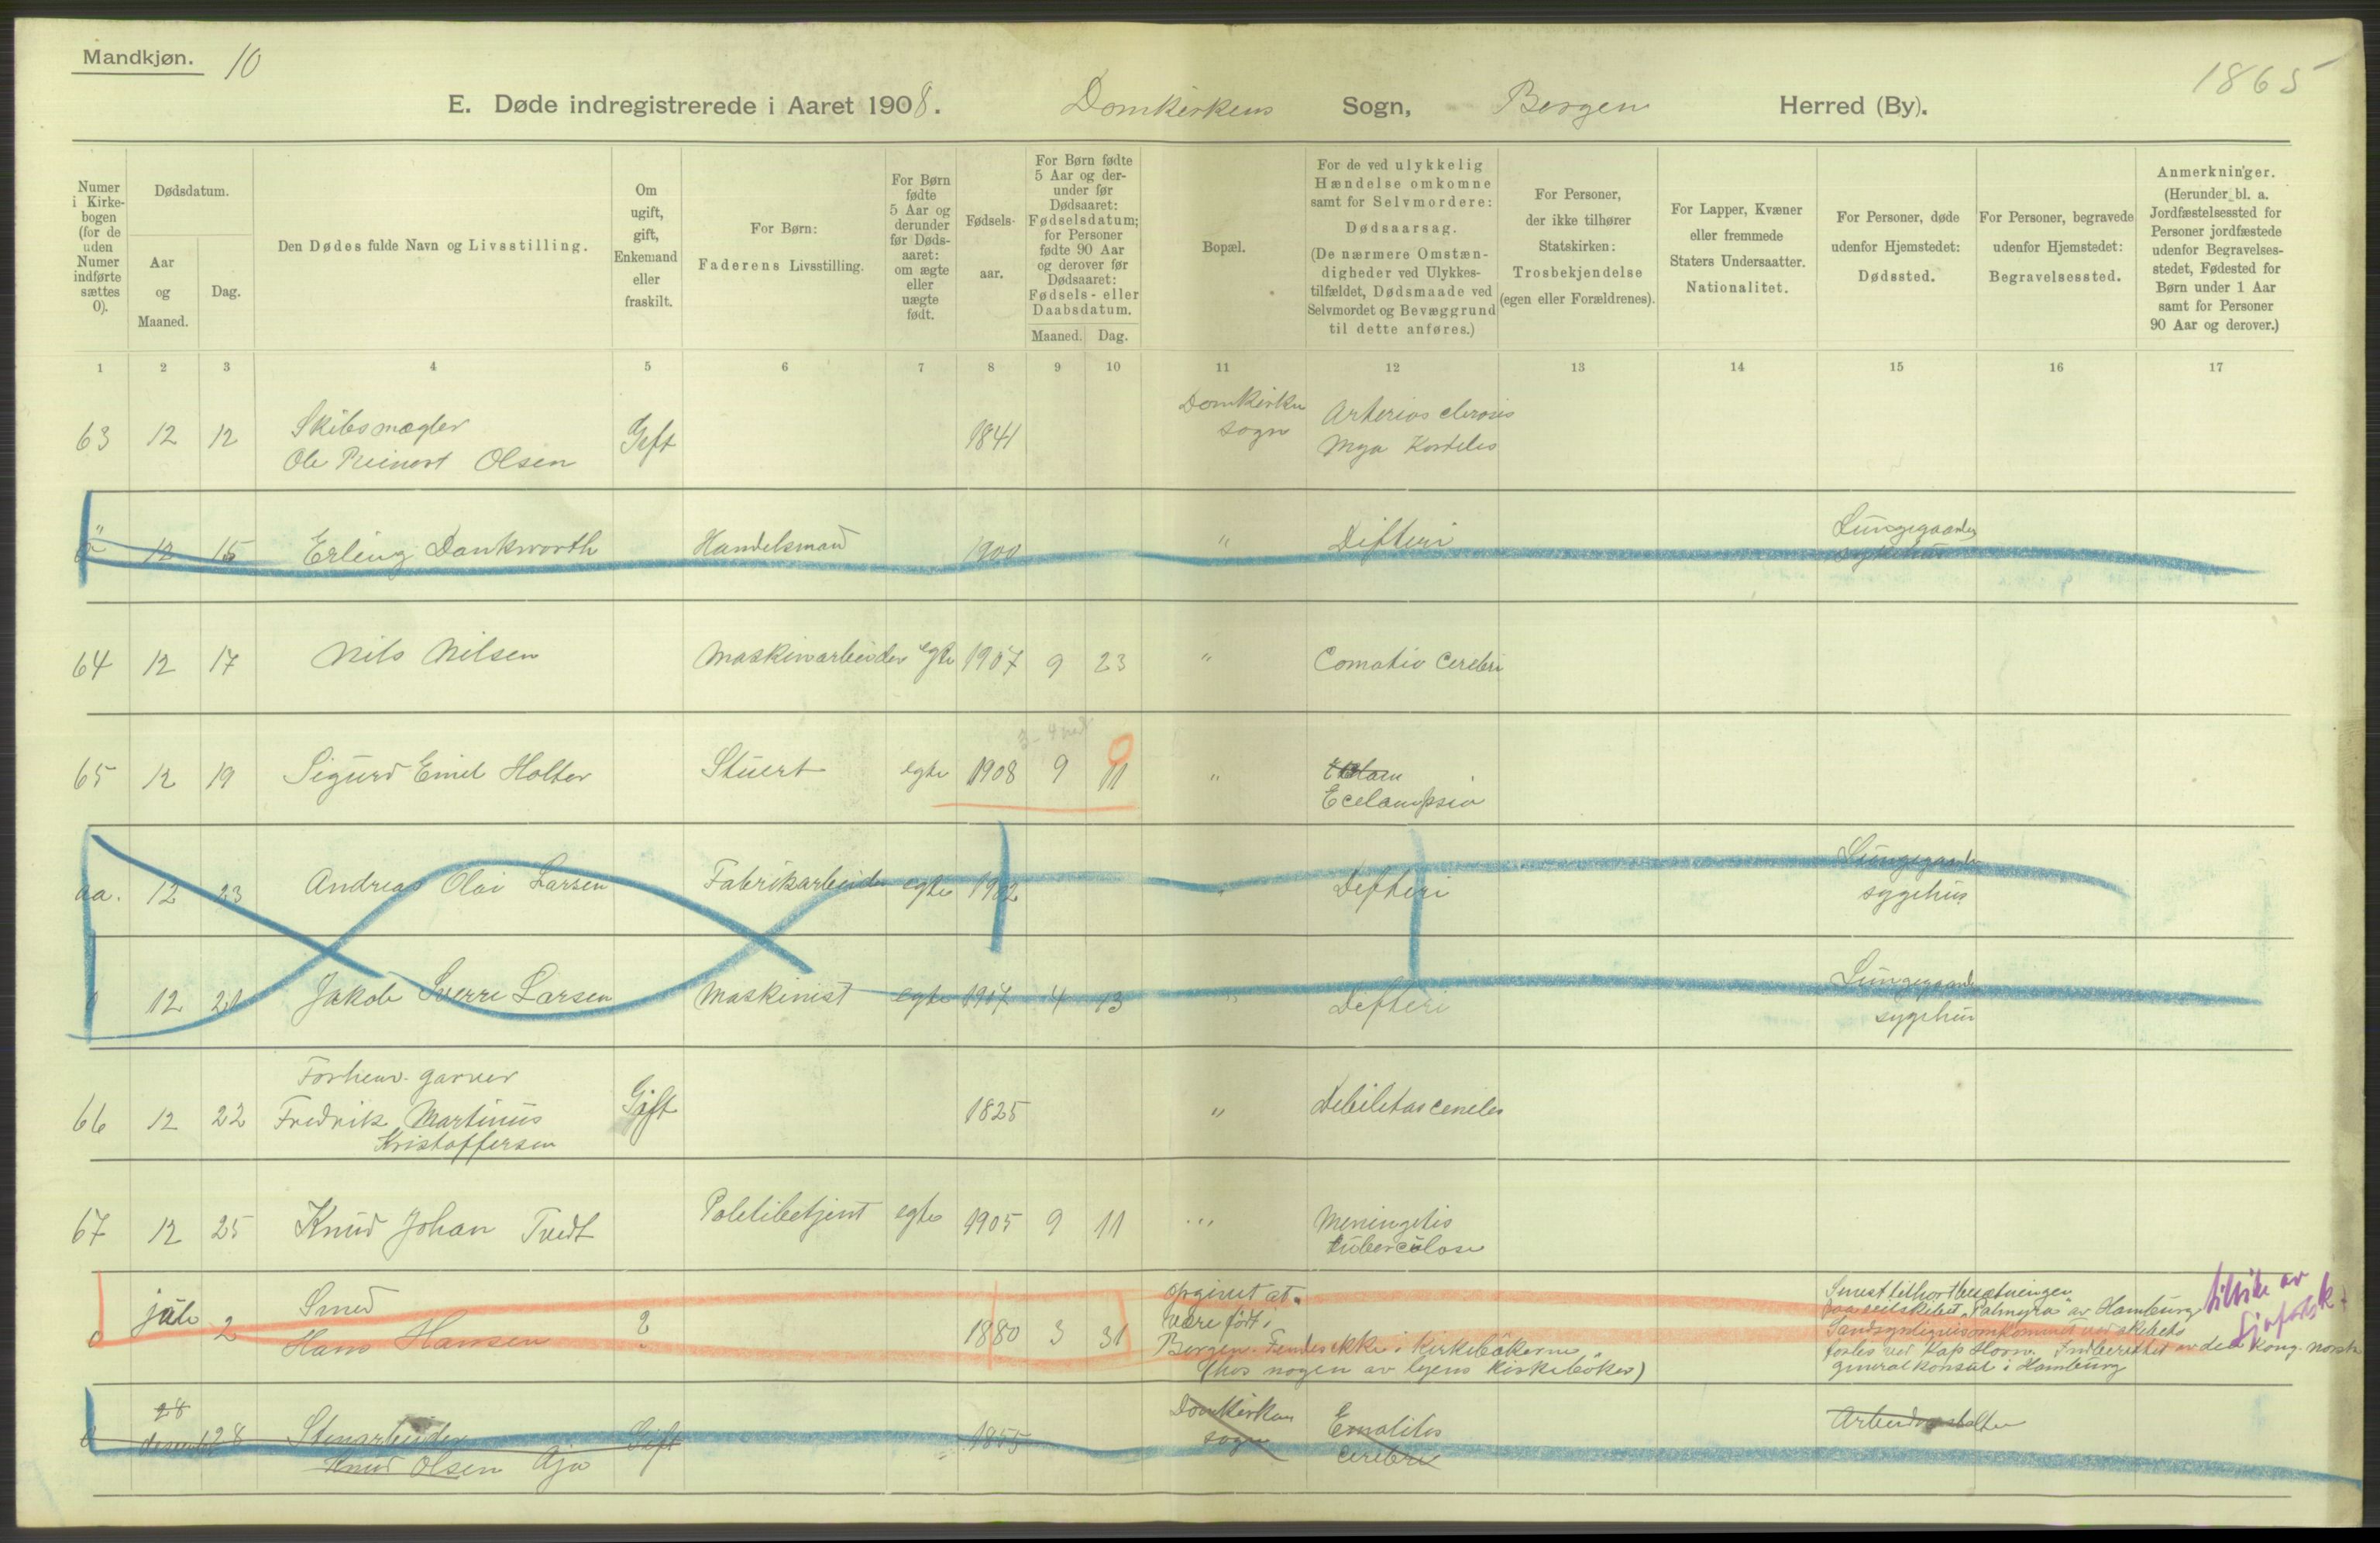 Mandkjøn. 10
1865
E. Døde indregistrerede i Aaret 1908. Domkirkens Sogn, Bergen Herred (By).
Numer i Kirkebogen (for de uden Numer indførte sættes 0).
Dødsdatum.
Aar og Maaned.
Dag.
Den Dødes fulde Navn og Livsstilling.
Om ugift, gift, Enkemand eller fraskilt.
For Børn: Faderens Livsstilling.
For Børn fødte 5 Aar og derunder før Dødsaaret: om ægte eller uægte født.
Fødselsaar.
For Børn fødte 5 Aar og derunder før Dødsaaret: Fødselsdatum; for Personer fødte 90 Aar og derover før Dødsaaret: Fødsels- eller Daabsdatum.
Maaned. Dag.
Bopæl.
For de ved ulykkelig Hændelse omkomne samt for Selvmordere: Dødsaarsag. (De nærmere Omstændigheder ved Ulykkestilfældet, Dødsmaade ved Selvmordet og Bevæggrund til dette anføres.)
For Personer, der ikke tilhører Statskirken: Trosbekjendelse (egen eller Forældrenes).
For Lapper, Kvæner eller fremmede Staters Undersaatter. Nationalitet.
For Personer, døde udenfor Hjemstedet: Dødssted.
For Personer, begravede udenfor Hjemstedet: Begravelsessted.
Anmerkninger. (Herunder bl. a. Jordfæstelsessted for Personer jordfæstede udenfor Begravelsesstedet, Fødested for Børn under 1 Aar samt for Personer 90 Aar og derover.)
1 2 3 4 5 6 7 8 9 10 11 12 13 14 15 16 17
63 12 12 Skibsmægler Ole Reinert Olsen Gift 1841 Domkirken sogn Arteriosclerosis
12 15 Erling Dankworth Handelsmand 1900 " Difteri Lungegaardens sykehus
64 12 17 Nils Nilsen Maskinarbeider egte 1907 9 23 " Comotio Cerebri
65 12 19 Sigurd Emil Holter Stuert egte 1908 9 11 " Eclampsia
aa. 12 23 Andreas Olai Larsen Fabrikarbeider egte 1902 " Difteri Lungegaardens sygehus
12 21 Jakob Sverre Larsen Maskinist egte 1907 4 13 " Difteri Lungegaardens sygehus
66 12 22 Forhenv. garver Fredrik Martinus Kristoffersen Gift 1825 " Debilitas ceniles
67 12 25 Knud Johan Tvedt Politibetjent egte 1905 9 11 " Meningitis tuberculose
0 juli 2 Smed Hans Hansen ? 1880 3 31 opgivet at være født i
Bergen. Findes ikke i kirkebøkerne
(hos nogen av byens kirkebøker)
paa seilskibet "Palmyra" av Hamburg
forlis ved Kap Horn. Indberettet av det kong. norske
generalkonsul i Hamburg
0 28 desember 28 Stenarbeider Knud Olsen Gift 1855 Domkirken sogn cerebri